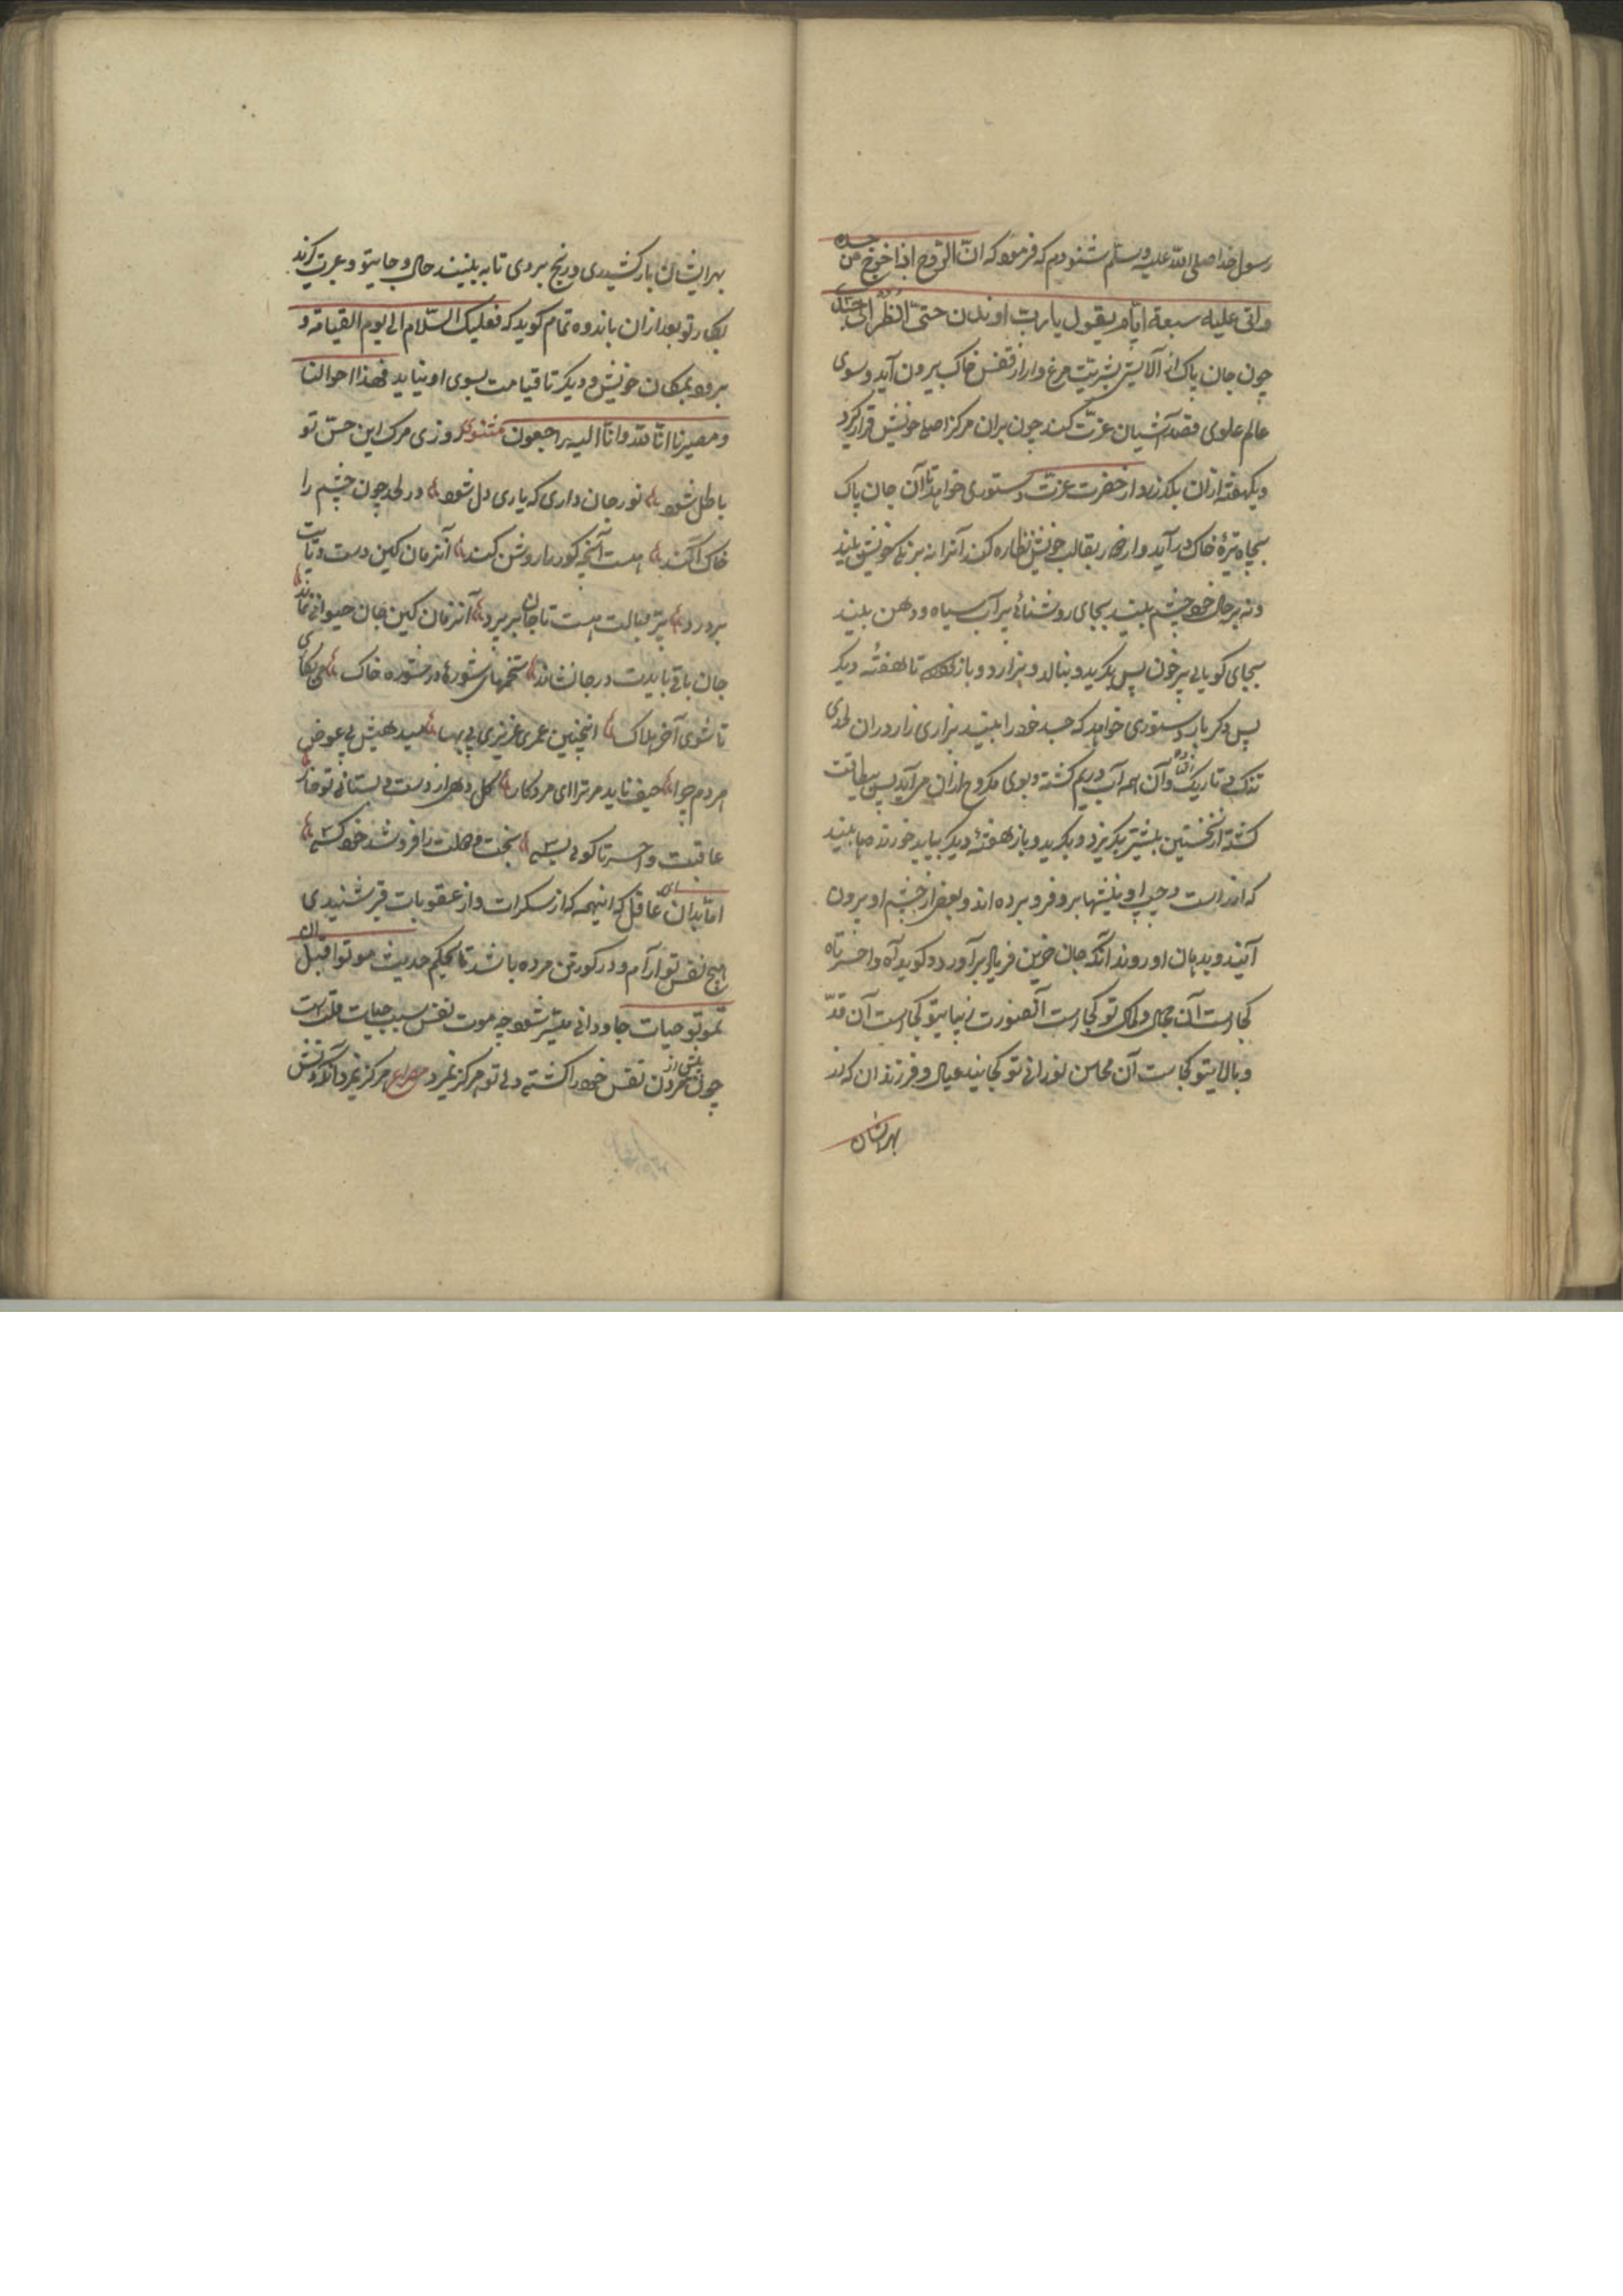 رسول خدا صلی الله علیه وسلم شنودم که فرموده که انّ الرّوح اذا خرج من جسده
واتی علیه سبعة ایّام یقول یا ربّ اوذن حتّی انظر الی جسدی
چون جان پاک از آلایش بشریّت مرغ وار از قفس خاک بیرون آید و سوی
عالم علوی قصد آشیان عزّت کند چون بران مرکز اصلی خویش قرار گیرد
ویکهفته ازان بگذرد از حضرت عزّت دستوری خواهد تا آن جان پاک
بچاه تیرهٔ خاک در آید و از بقالب خویش نظاره کند آنرا نه بر خویش بیند
ونه بر حال خود چشم بیند بجای روشنائی پر آب سیاه ودهن بیند
بجای گویائی پر خون پس بگرید و بنالد و بزارد و باز تا هفتهٔ دیگر
پس دگر بار دستوری خواهد که جسد خود را بیند بزاری زار دران لحدی
تنک و تاریک وآن همه آب وریم گشته و بوی مکروه ازان می آید پس بیطاقت
گشته از نخستین بیشتر بگریزد و بگرید و باز هفتهٔ دیگر بیاید خورنده‌ها بیند
که اندر است و چپ او نیشها برو فرو برده اند و بعضی از چشم او بیرون
آیند و بدهان او روند آنگه جان حزین فریاد بر آورد و گوید آه واحسرتاه
کجاست آن جمال و کمال تو کجاست آنصورت زیبایتو کجاست آن قدّ
و بالایتو کجاست آن محاسن نورانی تو کجایند عیال و فرزندان که از
بهر ایشان
بهر ایشان بار کشیدی و رنج بردی تا به بینند حال و جایتو و عبرت گیرند
بکار تو بعد ازان باندوه تمام گوید که فعلیک السّلام الی یوم القیامة و
برود بمکان خویش و دیگر تا قیامت بسوی او نیاید فهذا احوالنا
ومصیرنا انّا لله وانّا الیه راجعون مثنوی روزی مرک این حسّ تو
باطل شود نور جان داری که یاری دل شود در لحد چون چشم را
خاک آکند هست آنچه کور را روشن کند آنزمان کین دست و پایت
بر درد پرّ و بالت هست تا جان بر پرد آنزمان کین جان حیوانی نماند
جان باقی بایدت در جان نشاند تخمهای شوره در شوره خاک می‌نکاری
تا شوی آخر هلاک اینچنین عمری عزیزی بی بها میدهیش بی عوض
مردم چرا حیف ناید مر ترا ای مرد کار گل دهی از دست و بستانی تو خار
عاقبت واحسرتا گوئی بسی بخت و مهلت را فروشد خود کسی
امّا بدان ای عاقل که اینهمه که از سکرات و از عقوبات قبر شنیدی
هیچ نفس تو آرام و در گور تن مرده باشد تا بحکم حدیث موتوا قبل ان
تموتوا حیات جاودانی میسّر شود چه موت نفس سبب حیات قلب است
چون پیش از مردن نفس خود را کشته دل تو هرگز نمرد مصراع هرگز نمیرد آنکه